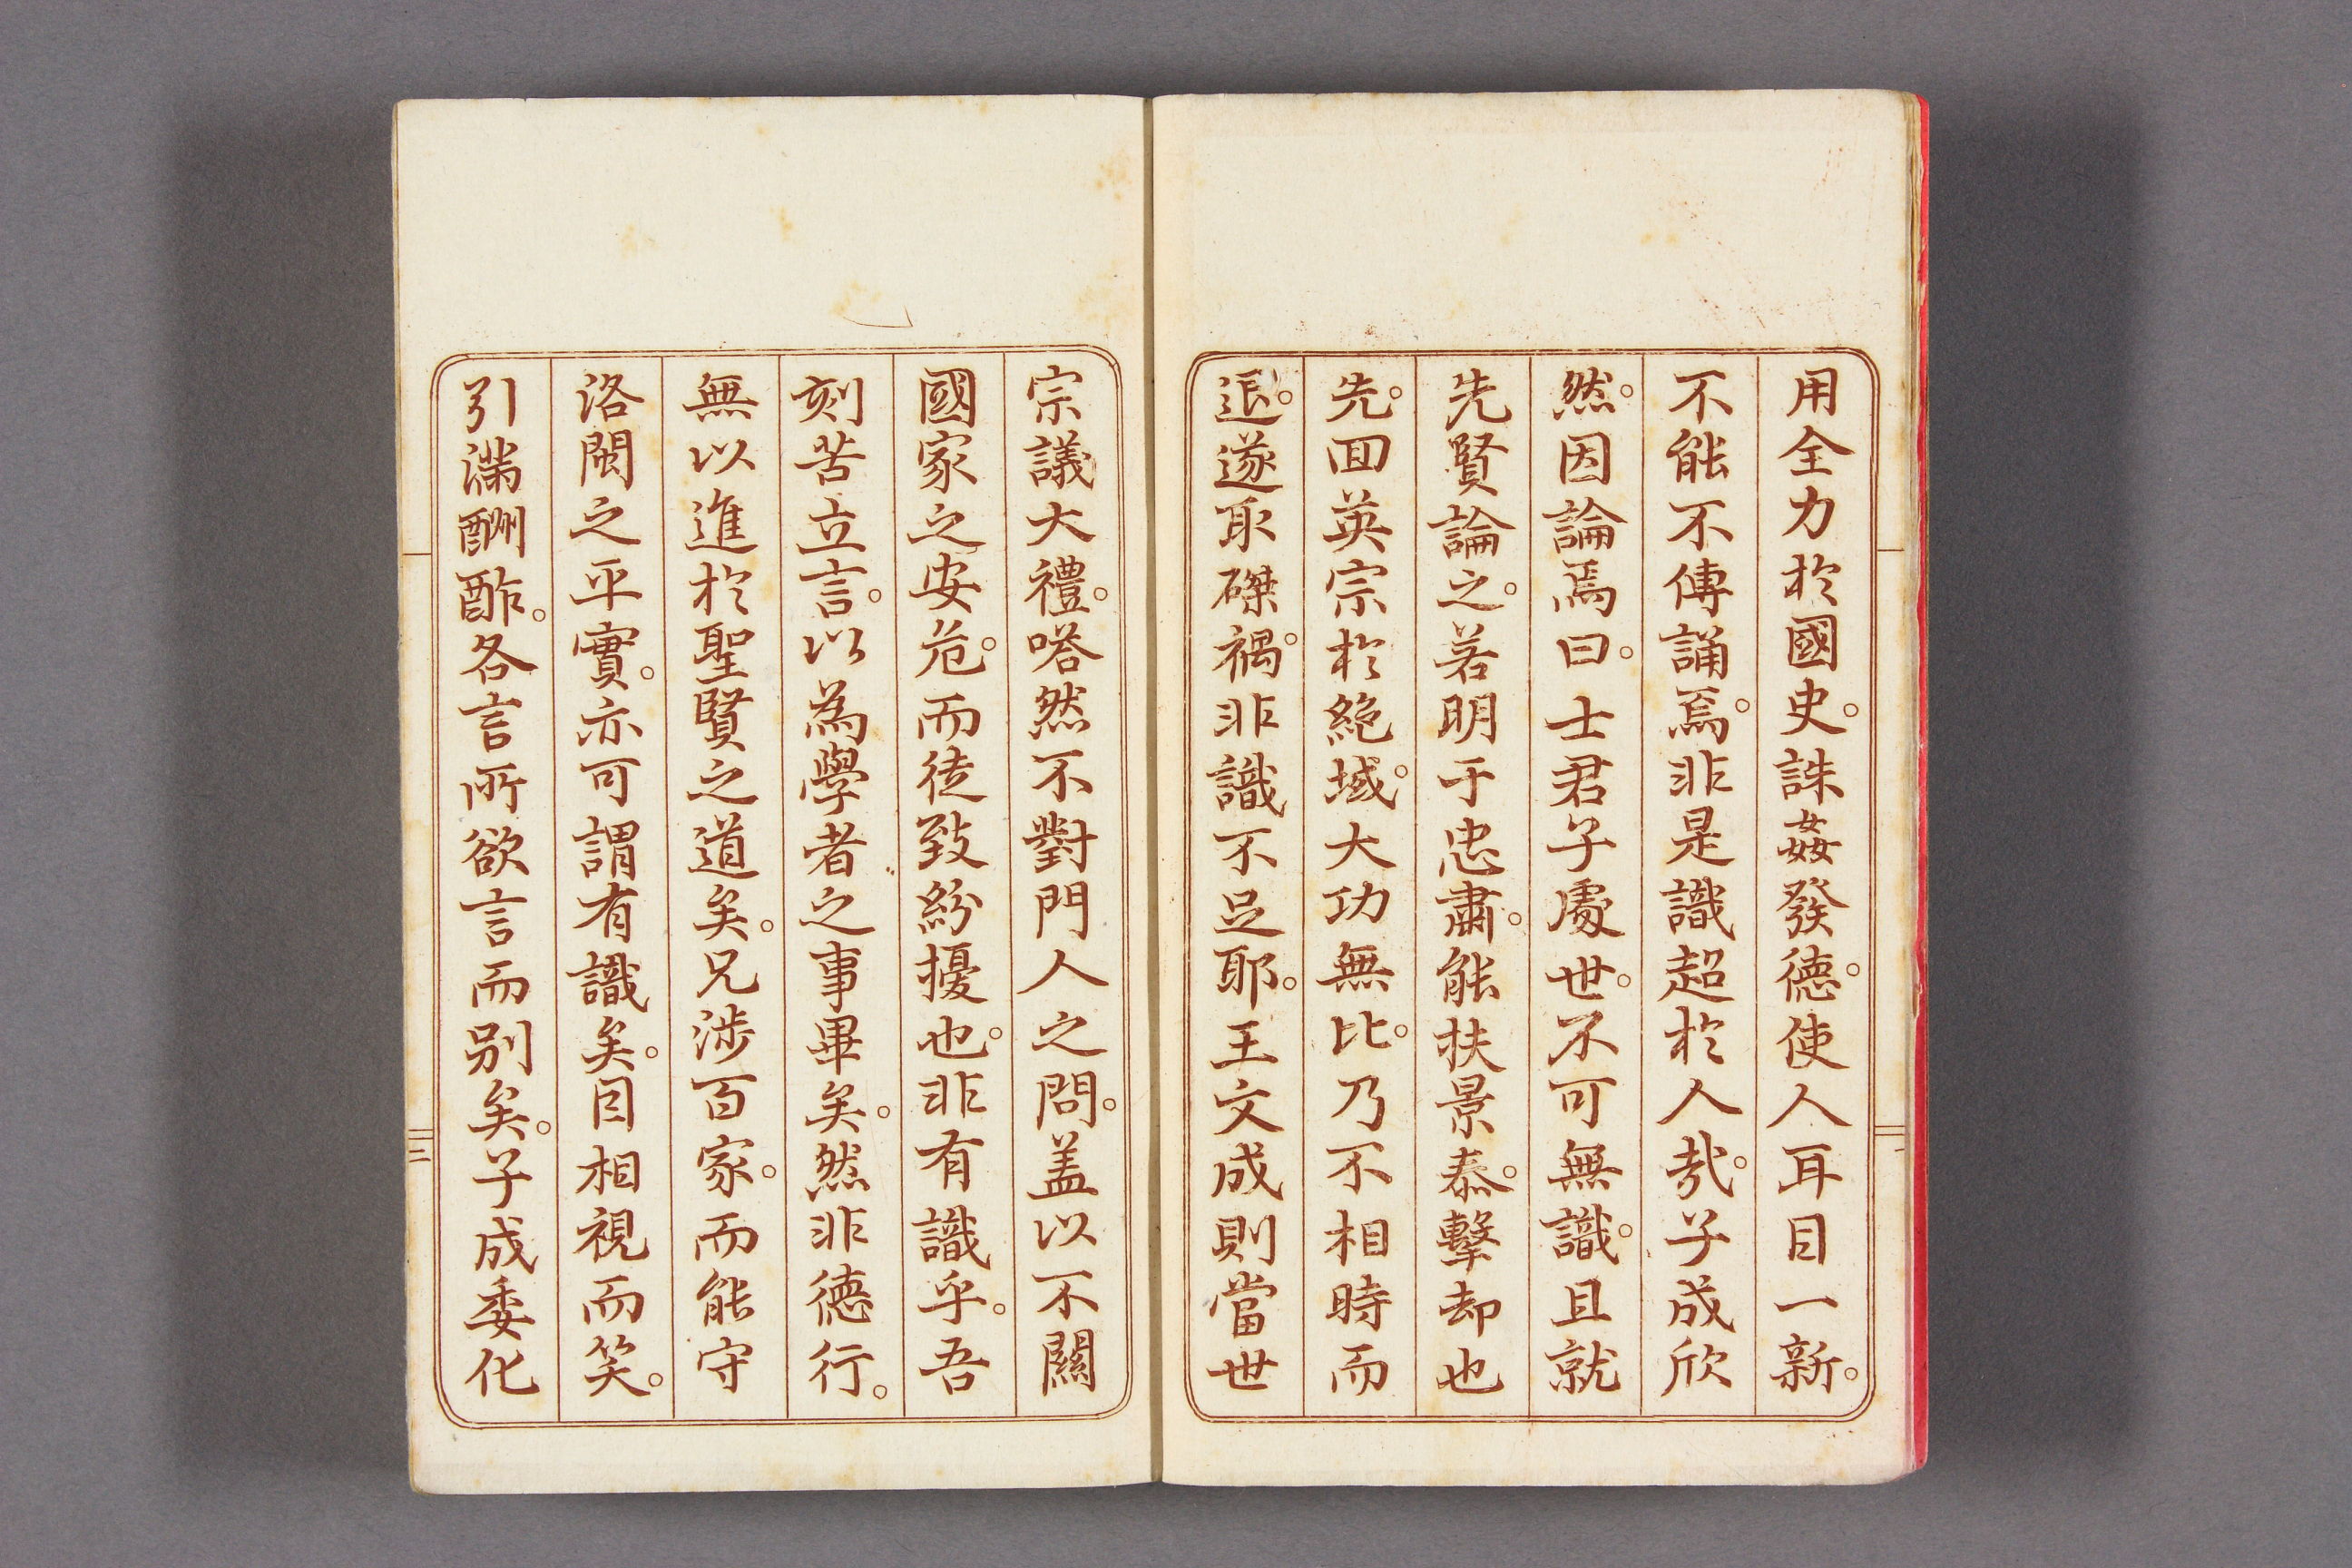 用全力於國史。誅姦發德。使人耳目一新。
不能不傳誦焉。非是識超於人哉。子成欣
然。因論焉曰。士君子處世。不可無識。且就
先賢論之。若明于忠肅。能扶景泰。擊却也
先。回英宗於絶域。大功無比。乃不相時而
退。遂取磔禍。非識不足耶。王文成則當世
宗議大禮。嗒然不對門人之問。盖以不關
國家之安危。而徒致紛擾也。非有識乎。吾
刻苦立言。以為學者之事畢矣。然非德行。
無以進於聖賢之道矣。兄涉百家。而能守
洛閩之平實。亦可謂有識矣。目相視而笑。
引滿酬酢。各言所欲言而別矣。子成委化
三